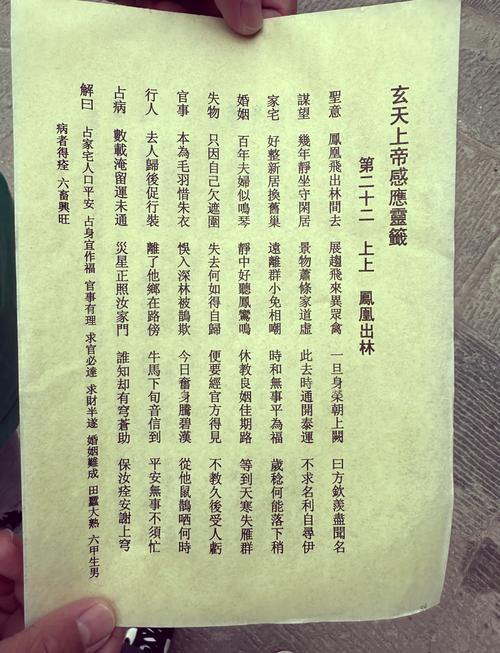 玄天上帝感應靈籤
第二十二 上上 鳳凰出林
聖意 鳳凰飛出林間去 展趐飛來異眾禽 一旦身榮朝上闕 曰方欽羨盡聞名
謀望 幾年靜坐守閑居 景物蕭條家道虛 此去時通開泰運 不求名利自尋伊
家宅 好整新居換舊巢 遠離群小免相嘲 時和無事平為福 歲稔何能落下稍
婚姻 百年夫婦似鳴琴 靜中好聽鳳鸞鳴 休教良姻佳期路 等到天寒失雁群
失物 只因自己欠遮圍 失去何如得自歸 便要經官方得見 不教久後受人虧
官事 本為毛羽惜朱衣 悞入深林被鵲欺 今日奮身騰碧漢 從他鼠鵲哂何時
行人 去人歸後促行裝 離了他鄉在路傍 牛馬下旬音信到 平安無事不須忙
占病 數載淹留運未通 災星正照汝家門 誰知却有穹蒼助 保汝痊安謝上穹
解曰 占家宅人口平安 占身宜作福 官事有理 求官必達 求財半遂 婚姻難成 田蠶大熟 六甲生男
病者得痊 六畜興旺